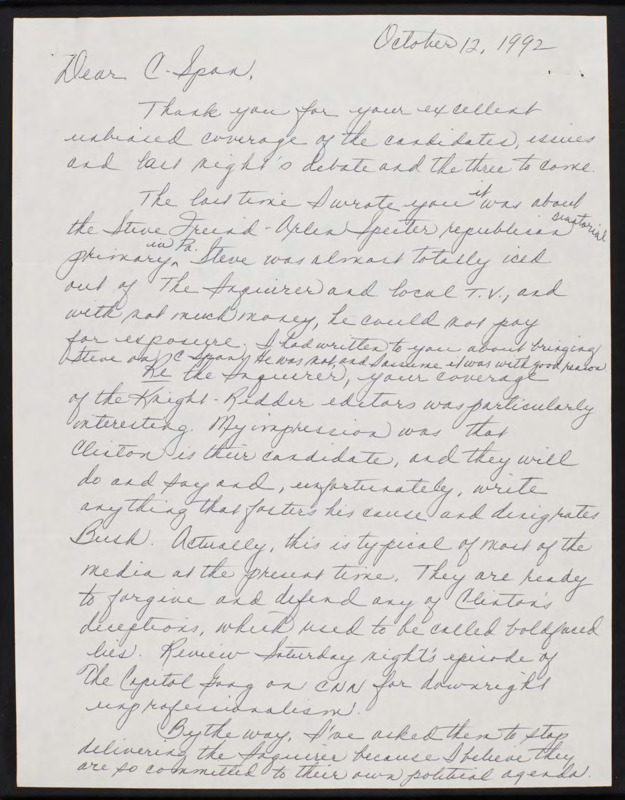 October 12, 1992
Dear C-Span,
Thank you for your excellent
unbiased coverage of the candidates, issues
and last night's debate and the three to come.
The last time I wrote you it was about
the Steve Freind-Arlen Specter republican senatorial
primary in Pa. Steve was almost totally iced
out of The Inquirer and local T.V., and
with not much money, he could not pay
for exposure. I had written to you about bringing
Steve on C Span. He was not, and I assume it was with good reason
Re the Inquirer, your coverage
of the Knight-Ridder editors was particularly
interesting. My impression was that
Clinton is their candidate, and they will
do and say and, unfortunately, write
anything that fosters his cause and denigrates
Bush. Actually, this is typical of most of the
media at the present time. They are ready
to forgive and defend any of Clinton's
deceptions, which used to be called boldfaced
lies. Review Saturday night's episode of
The Capitol Gang on CNN for downright
unprofessionalism.
By the way, I've asked them to stop
delivering the Inquirer because I believe they
are so committed to their own political agenda.